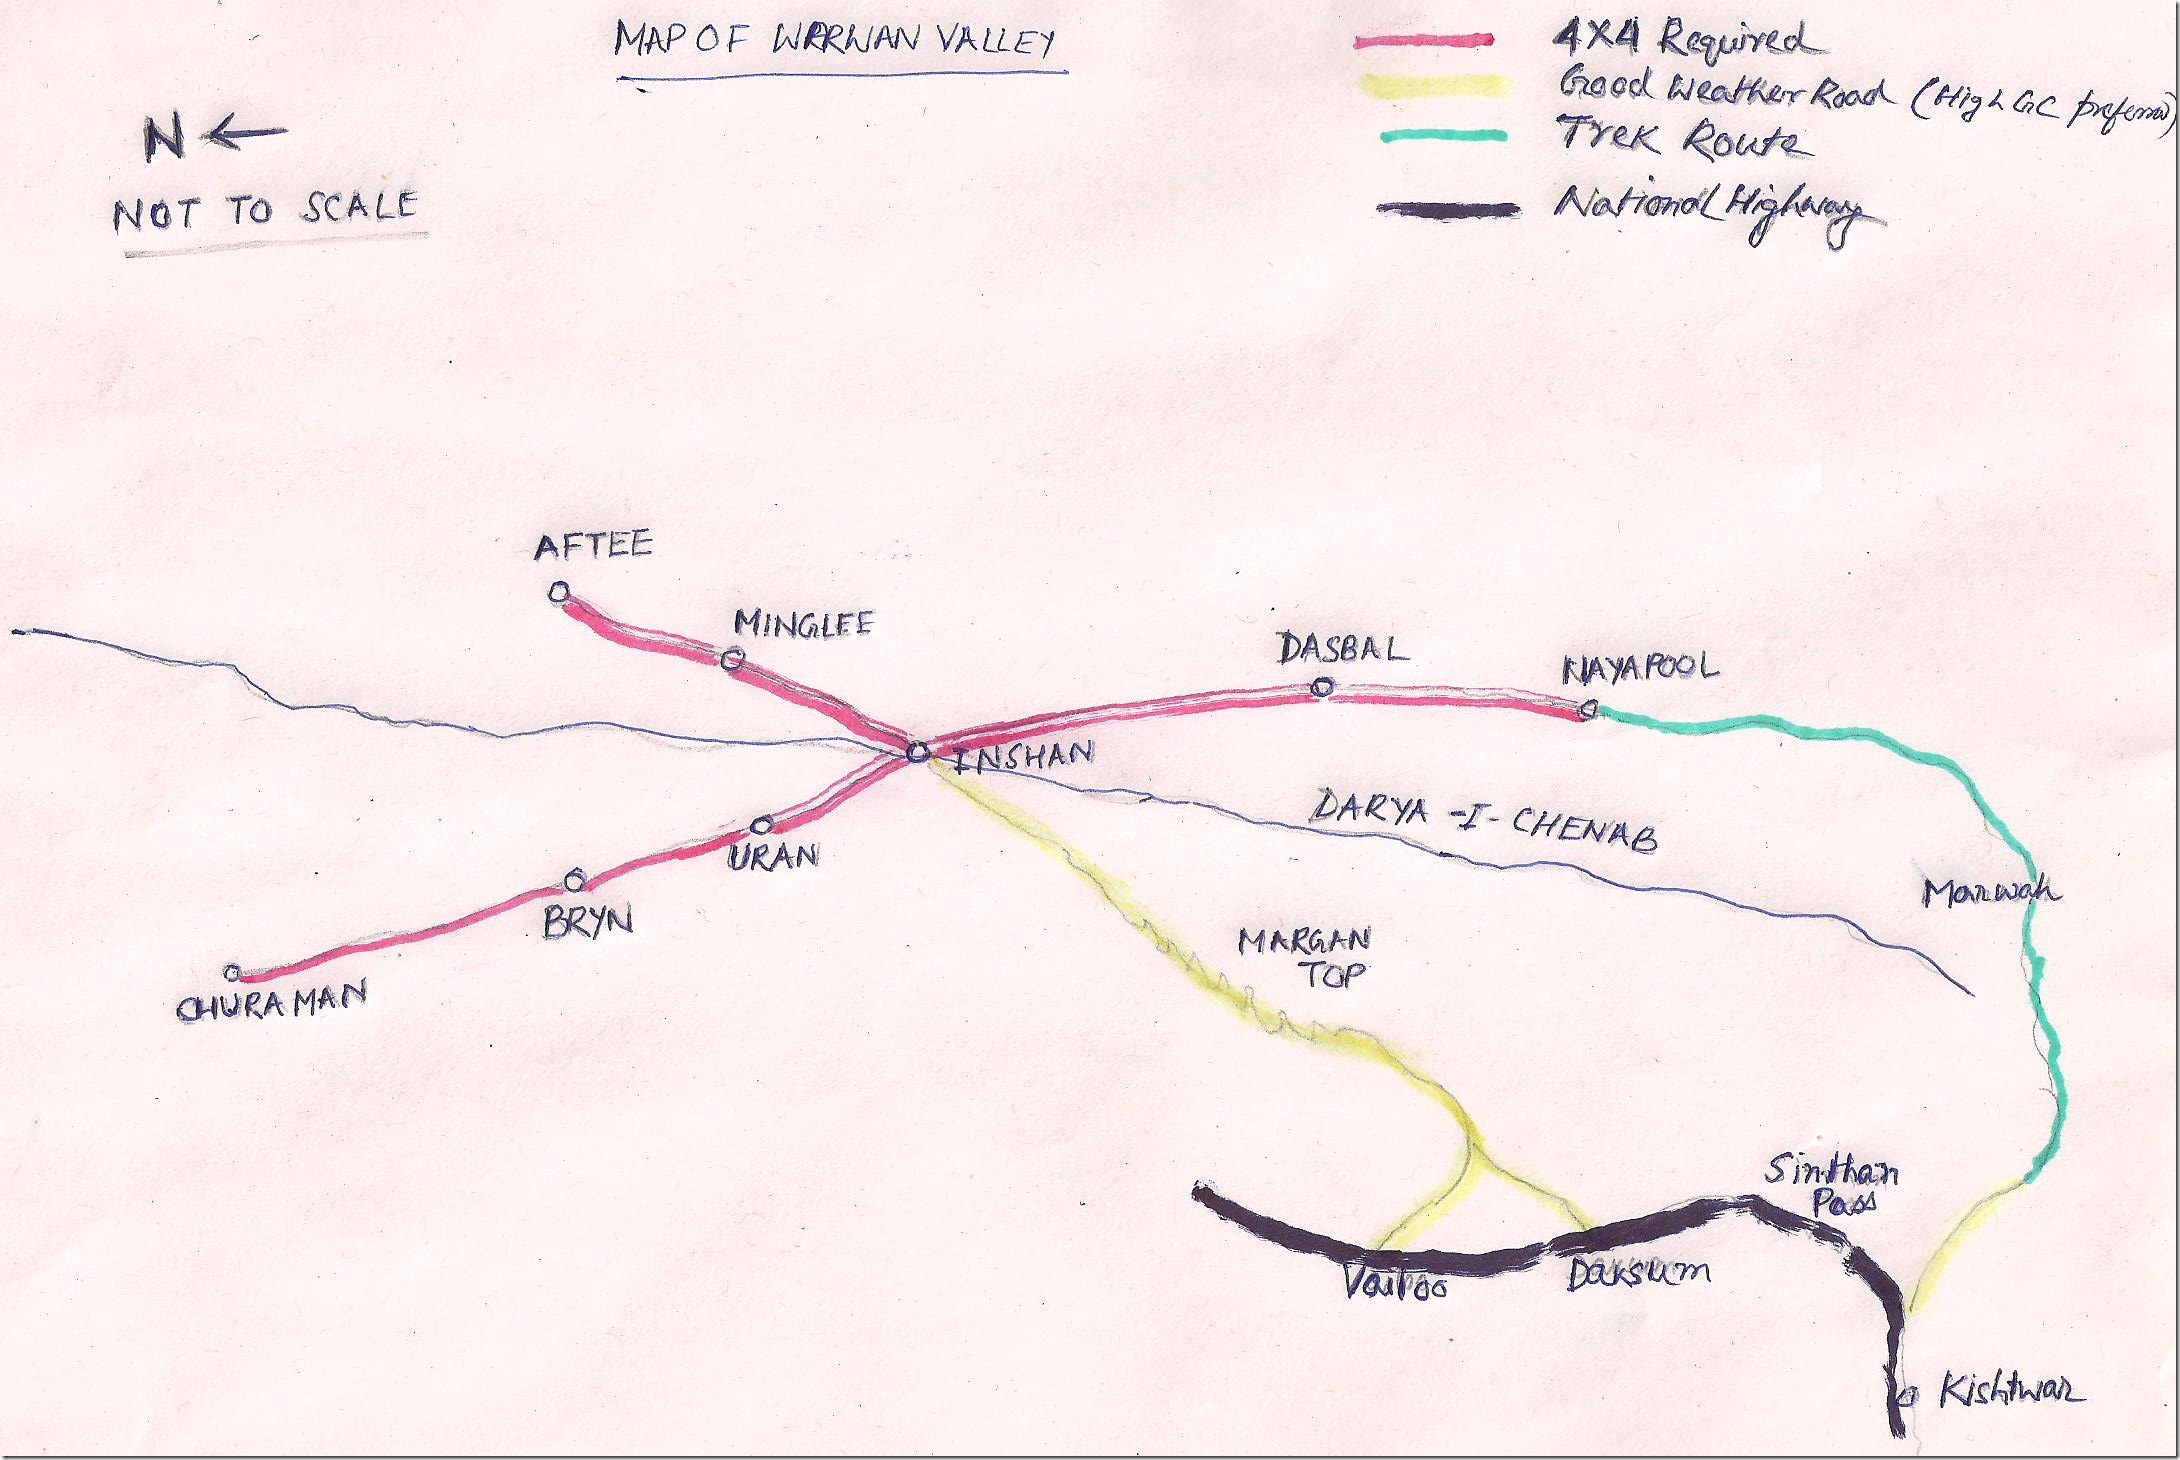 MAP OF WARWAN VALLEY
4X4 Required
Good Weather Road (High GC preferred)
Trek Route
National Highway
N
NOT TO SCALE
AFTEE
MINGLEE
DASBAL
NAYAPOOL
INSHAN
DARYA-I-CHENAB
URAN
BRYN
CHURAMAN
Marwah
MARGAN
TOP
Sinthan
Pass
Vailoo
Daksum
Kishtwar